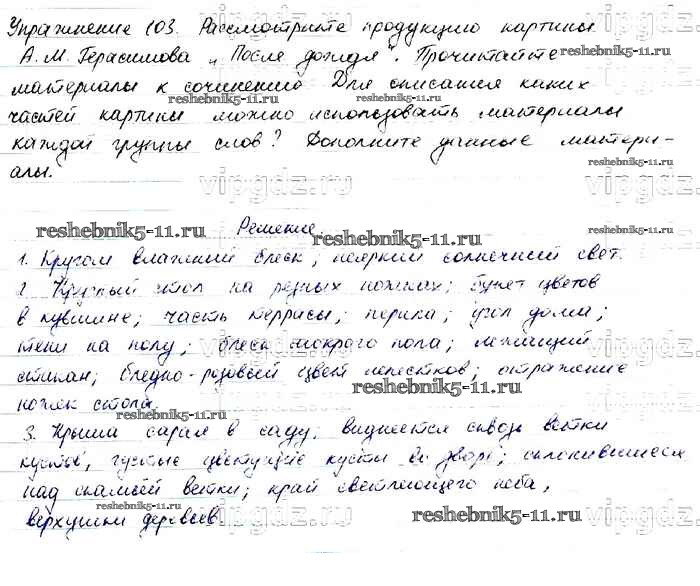 Упражнение 103. Рассмотрите продукцию картины
А. М. Герасимова „После дождя". Прочитайте
материалы к сочинению Для описания каких
частей картины можно использовать материалы
каждой группы слов? Дополните данные матери-
алы.
Решение.
1. Кругом влажный блеск, неяркий солнечный свет.
2 Круглый стол на резных ножках; букет цветов
в кувшине; часть террасы; перила; угол дома;
тени на полу; блеск мокрого пола; лежащий
стакан; бледно-розовый цвет лепестков; отражение
ножек стола.
3. Крыша сарая в саду, виднеется сквозь ветки
кустов, густые цветущие кусты во дворе; склонившиеся
над скамьёй ветки; край светлеющего неба,
верхушки деревьев.
reshebnik5-11.ru
vipgdz.ru